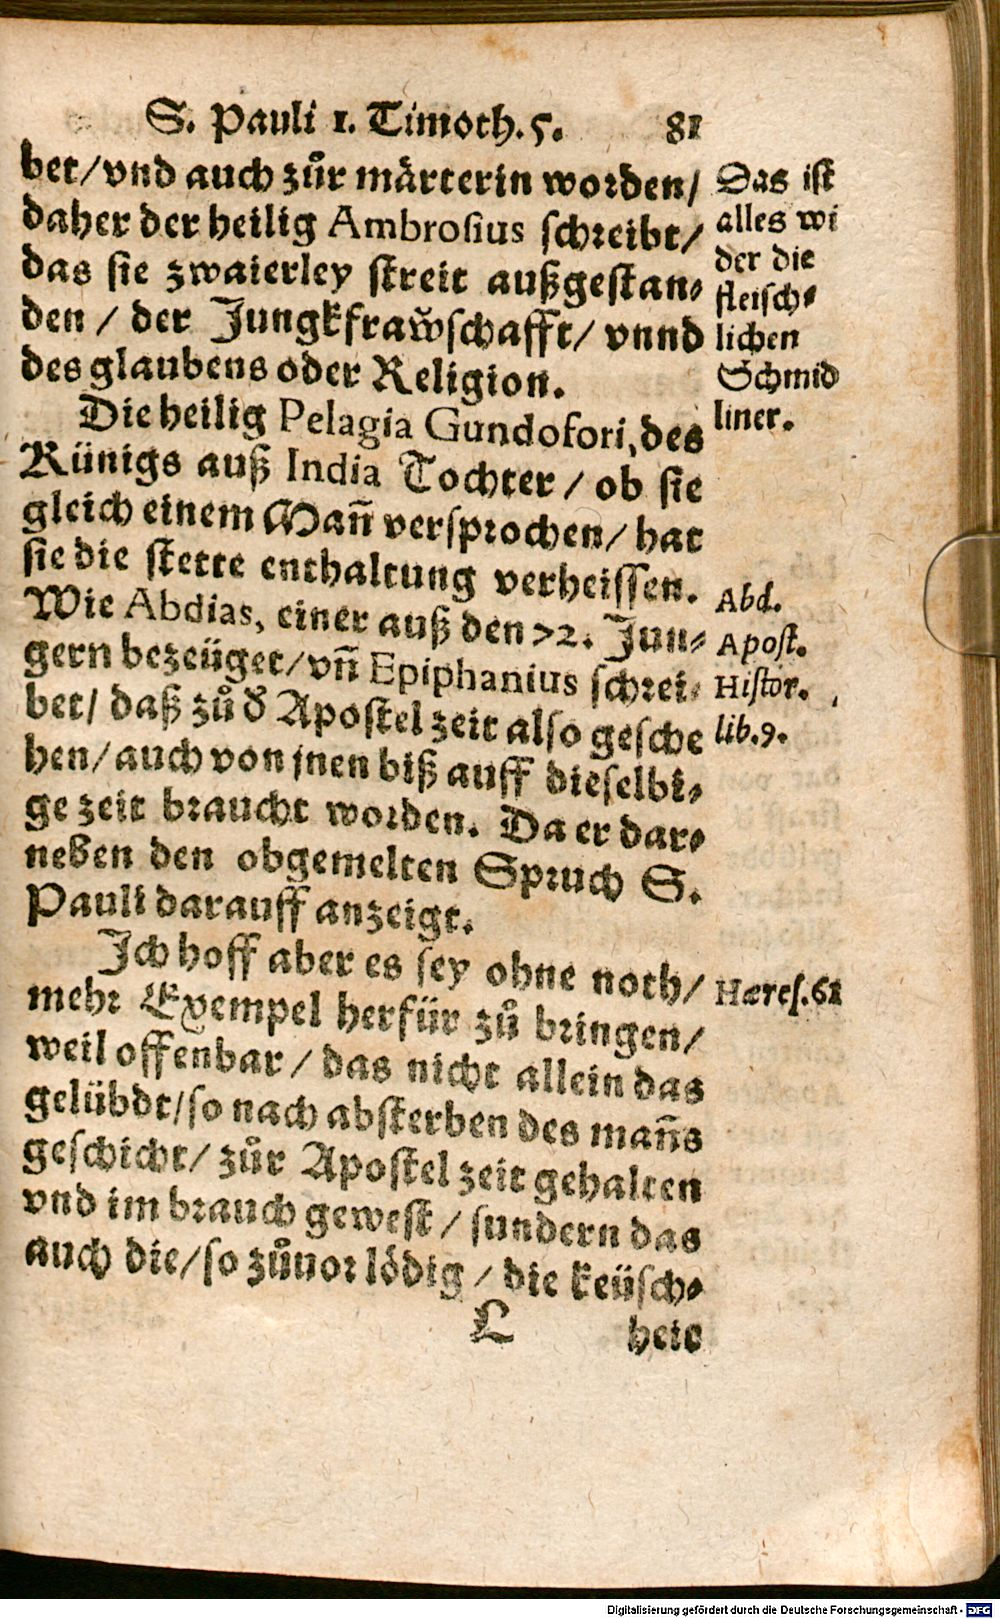 S. Pauli 1. Timoth. 5. 81
bet/vnd auch zůr märterin worden/
daher der heilig Ambrosius schreibt/
das sie zwaierley streit außgestan-
den / der Jungkfraw̌schafft/ vnnd
des glaubens oder Religion.
Die heilig Pelagia Gundofori, des
Künigs auß India Tochter / ob sie
gleich einem Mañ versprochen/ hat
sie die stette enthaltung verheissen.
Wie Abdias, einer auß den 72. Jun-
gern bezeüget/ vñ Epiphanius schrei-
bet/ daß zů d̕ Apostel zeit also gesche
hen/ auch von jnen biß auff dieselbi-
ge zeit braucht worden. Da er dar-
neben den obgemelten Spruch S.
Pauli darauff anzeigt.
Ich hoff aber es sey ohne noth/
mehr Exempel herfür zů bringen/
weil offenbar / das nicht allein das
gelübdt/so nach absterben des mañs
geschicht/ zůr Apostel zeit gehalten
vnd im brauch gewest / sundern das
auch die/so zůuor lödig / die keüsch-
L heit
Das ist
alles wi
der die
fleisch-
lichen
Schmid
liner.
Abd.
Apost.
Histor.
lib.9.
Hæres.61
Digitalisierung gefördert durch die Deutsche Forschungsgemeinschaft - DFG